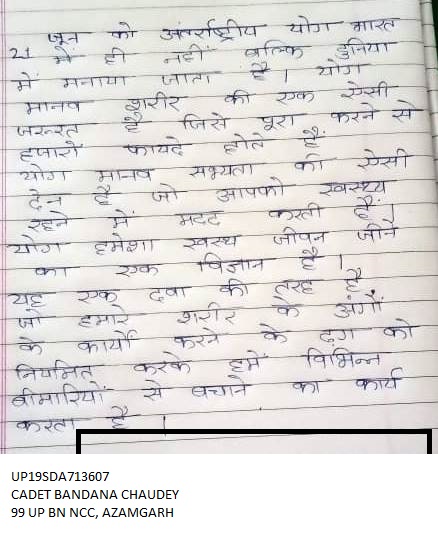 21 जून को अंतर्राष्ट्रीय योग भारत
में ही नहीं बल्कि दुनिया
में मनाया जाता है। योग
मानव शरीर की एक ऐसी
जरूरत है जिसे पूरा करने से
हजारों फायदे होते हैं
योग मानव सभ्यता की ऐसी
देन है जो आपको स्वस्थ्य
रहने में मदद करती है।
योग हमेशा स्वस्थ जीवन जीने
का एक विज्ञान है।
यह एक दवा की तरह है
जो हमारे शरीर के अंगों
के कार्यों करने के ढ़ग को
नियमित करके हमें विभिन्न
बीमारियों से बचाने का कार्य
करता है।
UP19SDA713607
CADET BANDANA CHAUDEY
99 UP BN NCC, AZAMGARH